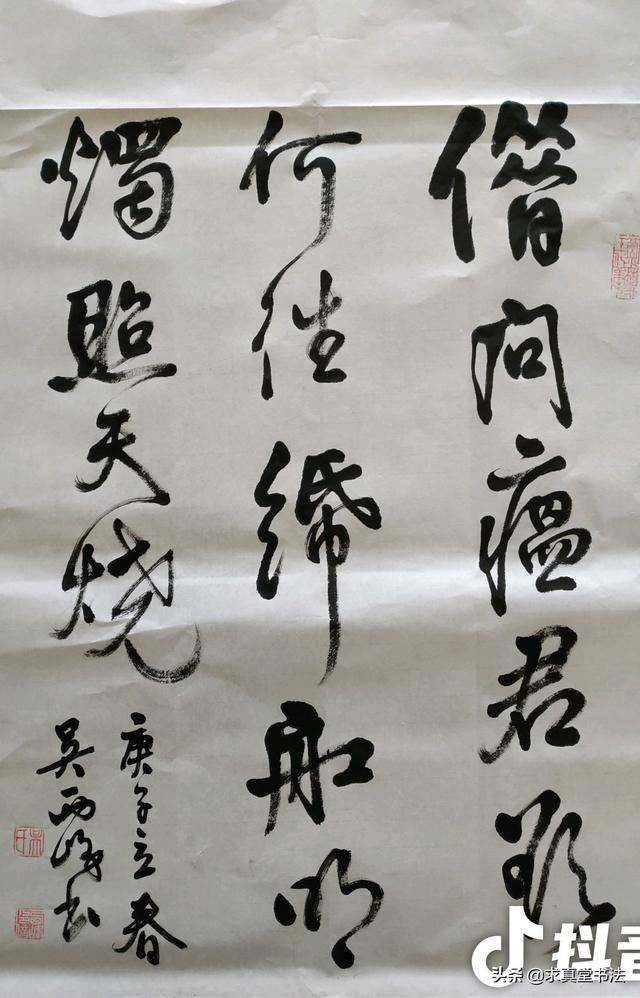 借问瘟君欲
何往纸船明
燭照天烧
庚子立春
吴西峰书
抖音
头条 @求真堂书法